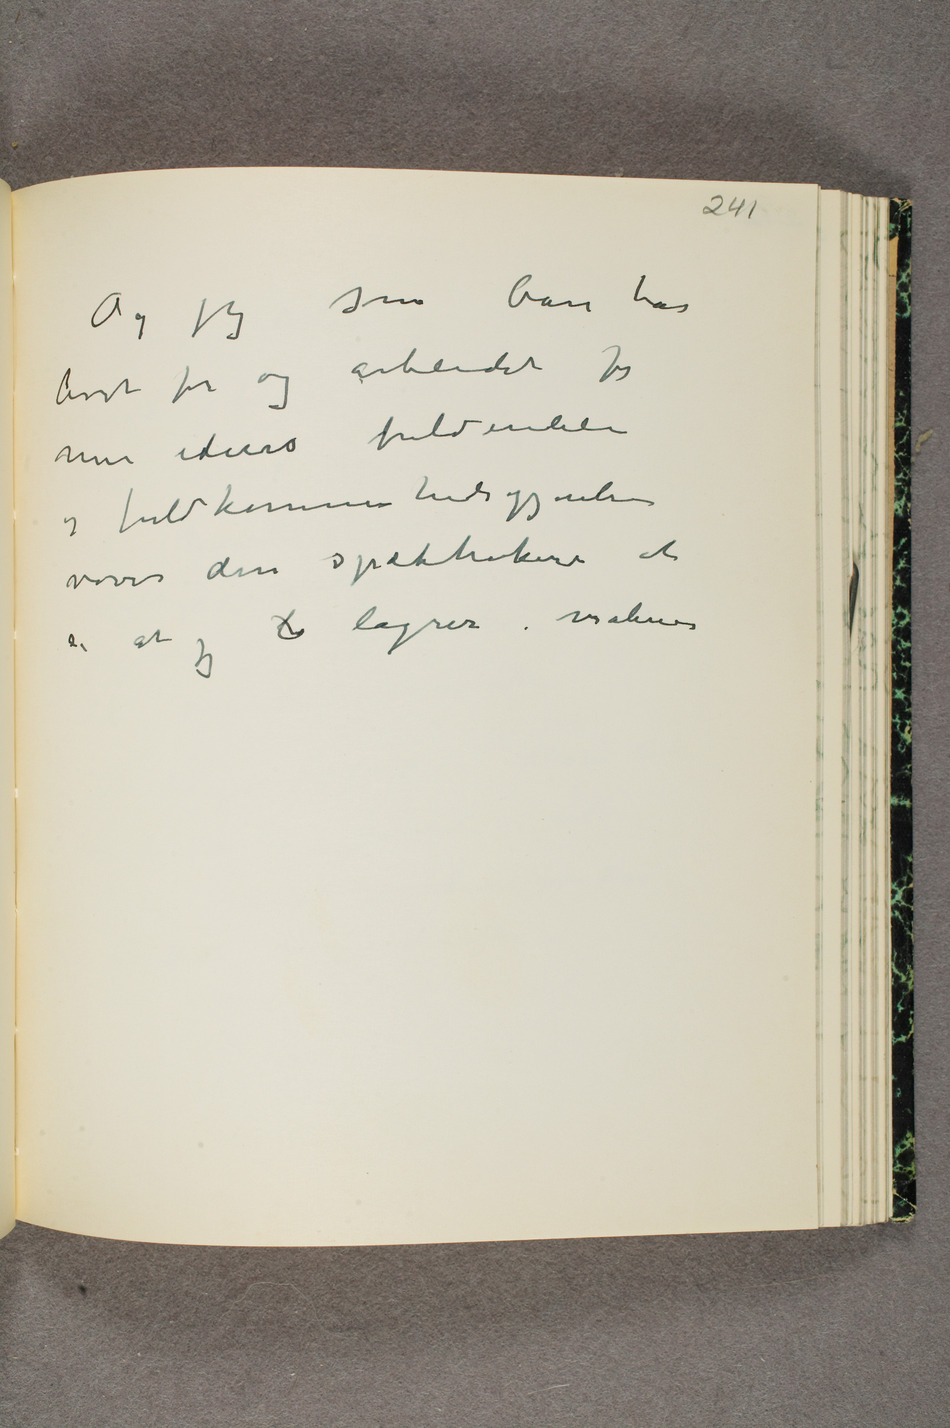 241
Og jeg som bare har
levet for og arbeidet for
min idees fuldendelse
og fuldkommenhedsgjørelse
vover den spækhøkeren at
si at jeg lagrer.